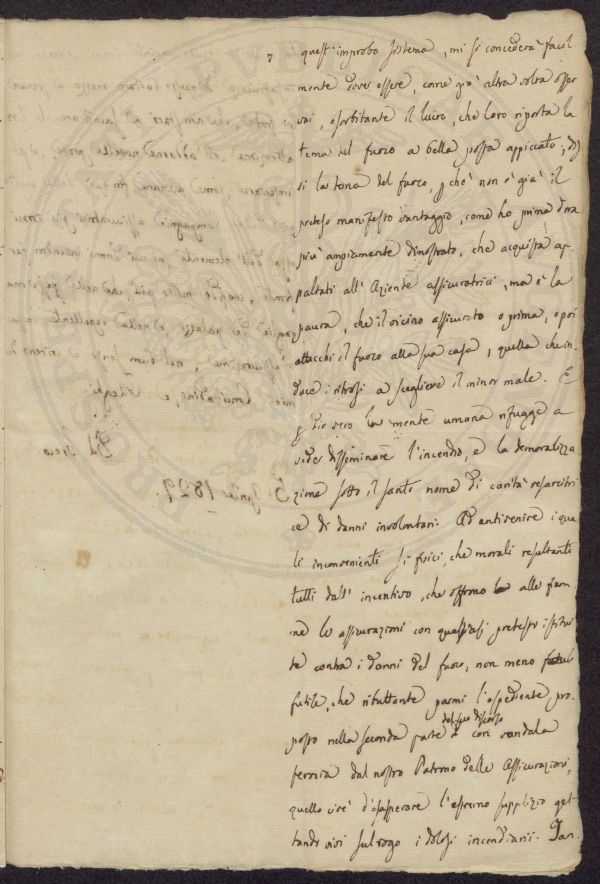 7
quest' improbo sistema, mi si concederà facil
mente dover essere, come già altra volta osser
vai, esorbitante il lucro, che loro riporta la
tema del fuoco a bella possa appiccato; di
si la tema del fuoco, perchè non è già il
preteso manifesto vantaggio, come ho prima d'ora
più ampiamente dimostrato, che acquista ap
paltati all' Aziende assicuratrici, ma è la
paura, che il vicino assicurato o prima, o poi
attacchi il fuoco alla sua casa, quella che in
duce i ritrosi a scegliere il minor male. E
per dir vero la mente umana rifugge a
veder disseminare l'incendio, e la demoralizza
zione sotto il santo nome di carità resarcitri
ce di danni involontari. Ad antivenire i qua
li inconvenienti sì fisici, che morali resultanti
tutti dall' incentivo, che offrono alle fiam
me le assicurazioni con qualsiasi pretesto istitui
te contra i danni del fuoco, non meno
futile, che ributtante parmi l'espediente pro-
posto nella seconda parte del suo discorso con vandala
fermia dal nostro Patrono delle Assicurazioni,
quello cioè d'esasperare l'estremo supplizio get
tando vivi sul rogo i dolosi incendiarii. Tan-